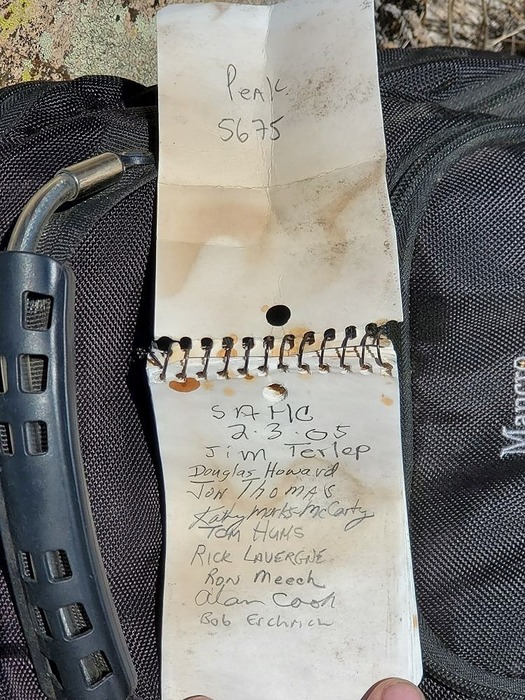 Peak
5675
SAHC
2.3.05
Jim Terlep
Douglas Howard
Jon Thomas
Kathy Marks-McCarty
Tom Hums
Rick Lavergne
Ron Meech
Alan Cook
Bob